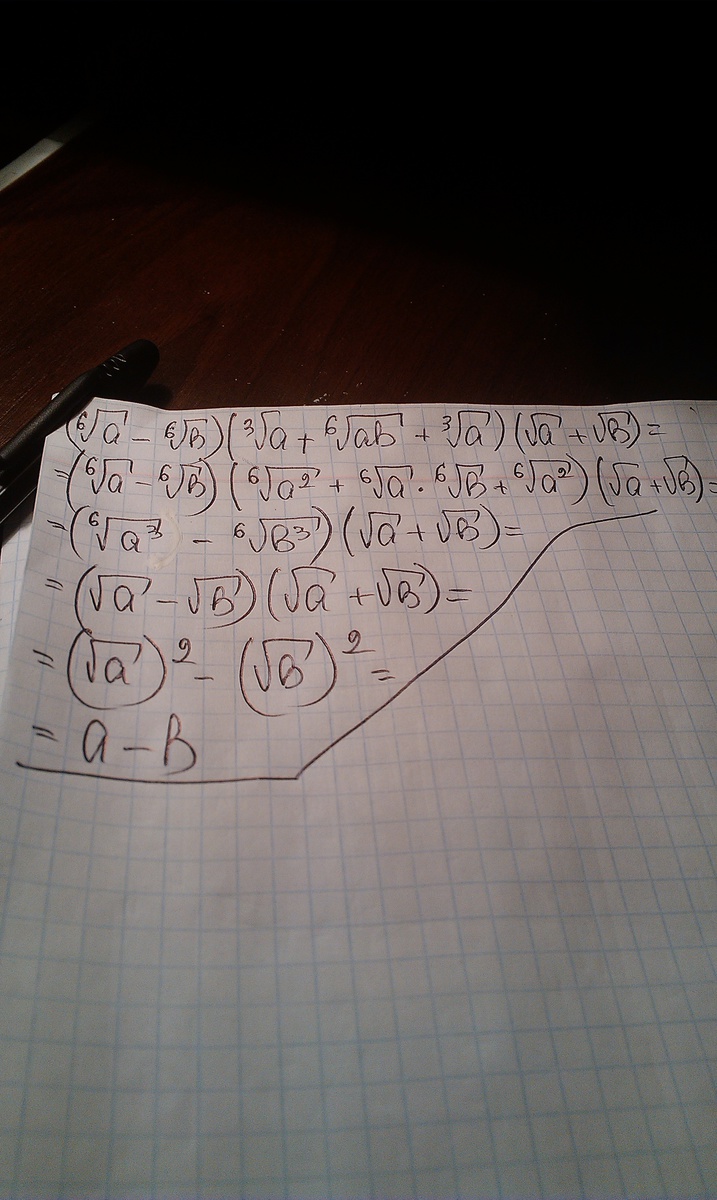 (⁶√a - ⁶√B)(³√a + ⁶√aB + ³√a)(√a + √B) =
= (⁶√a - ⁶√B)(⁶√a² + ⁶√a · ⁶√B + ⁶√a²)(√a + √B) =
= (⁶√a³ - ⁶√B³)(√a + √B) =
= (√a - √B)(√a + √B) =
= (√a)² - (√B)² =
= a - B